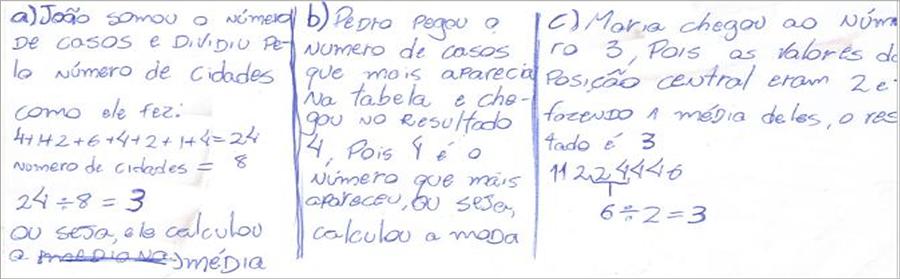 a) João somou o número
de casos e dividiu pe-
lo número de cidades
como ele fez:
4+1+2+6+4+2+1+4=24
numero de cidades = 8
24÷8=3
ou seja, ele calculou
a mediana média
b) Pedro pegou o
numero de casos
que mais aparecia
na tabela e che-
gou no resultado
4, pois 4 é o
número que mais
apareceu, ou seja,
calculou a moda
c) Maria chegou ao núm
ro 3, pois as valores da
posição central eram 2 e
fazendo a média deles, o res
tado é 3
11 2,2 4,4 4 6
6÷2=3